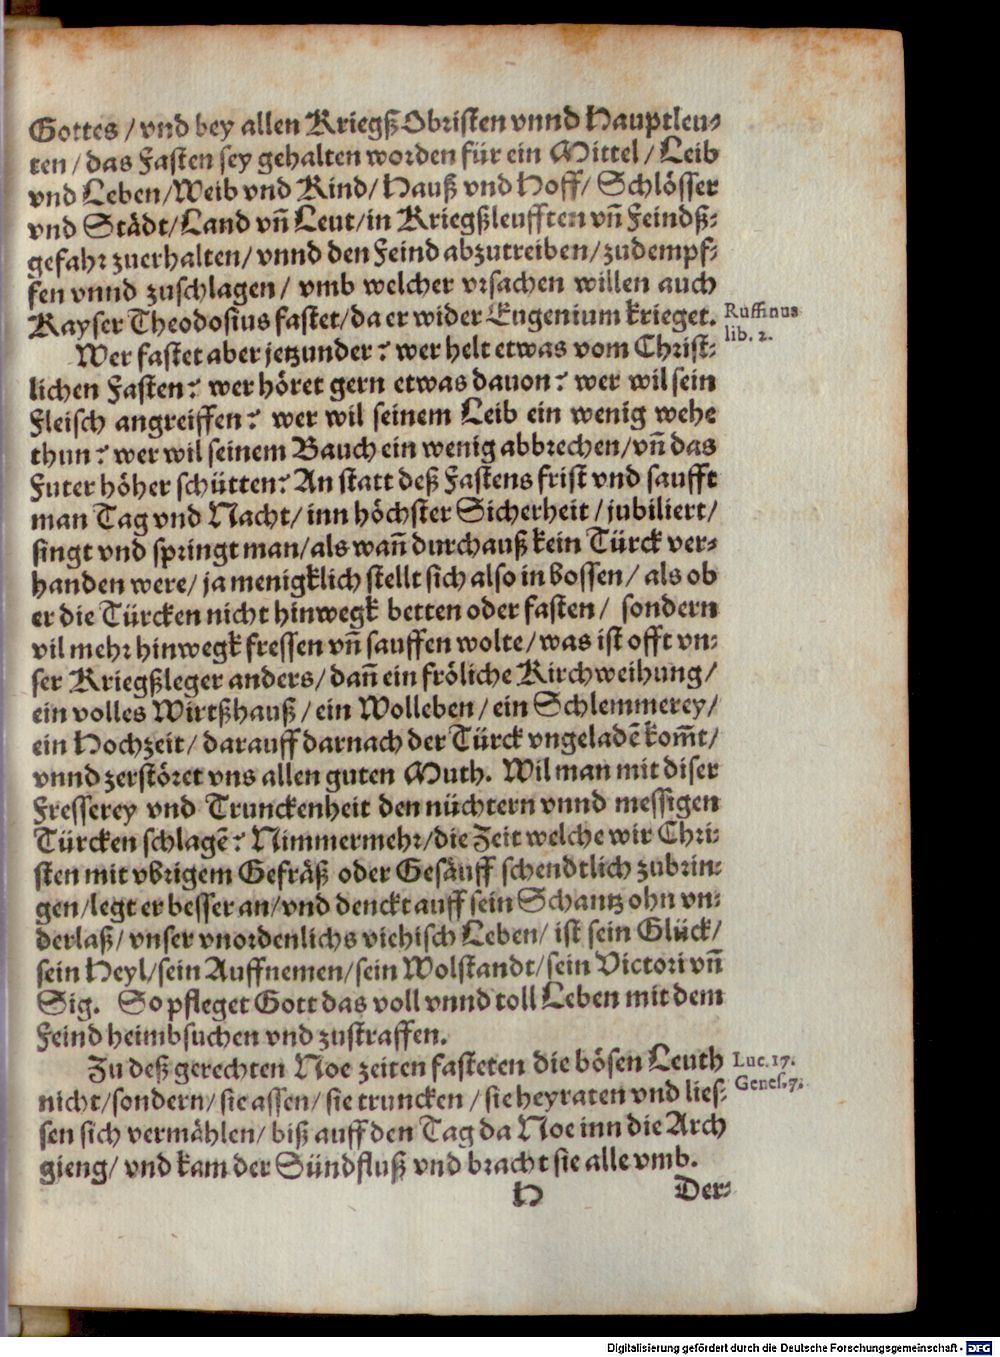 Gottes / vnd bey allen Kriegß Obristen vnnd Hauptleu-
ten / das Fasten sey gehalten worden für ein Mittel / Leib
vnd Leben / Weib vnd Kind / Hauß vnd Hoff / Schlösser
vnd Städt / Land vñ Leut / in Kriegßleufften vñ Feindß-
gefahr zuerhalten / vnnd den Feind abzutreiben / zudempf-
fen vnnd zuschlagen / vmb welcher vrsachen willen auch
Kayser Theodosius fastet / da er wider Eugenium krieget.
Ruffinus
lib. 2.
Wer fastet aber jetzunder? wer helt etwas vom Christ-
lichen Fasten? wer höret gern etwas dauon? wer wil sein
Fleisch angreiffen? wer wil seinem Leib ein wenig wehe
thun? wer wil seinem Bauch ein wenig abbrechen / vñ das
Futer höher schütten? An statt deß Fastens frist vnd saufft
man Tag vnd Nacht / inn höchster Sicherheit / jubiliert /
singt vnd springt man / als wañ durchauß kein Türck ver-
handen were / ja menigklich stellt sich also in bossen / als ob
er die Türcken nicht hinwegk betten oder fasten / sondern
vil mehr hinwegk fressen vñ sauffen wolte / was ist offt vn-
ser Kriegßleger anders / dañ ein fröliche Kirchweihung /
ein volles Wirtßhauß / ein Wolleben / ein Schlemmerey /
ein Hochzeit / darauff darnach der Türck vngeladẽ kom̃t /
vnnd zerstöret vns allen guten Muth. Wil man mit diser
Fresserey vnd Trunckenheit den nüchtern vnnd messigen
Türcken schlagẽ? Nimmermehr / die Zeit welche wir Chri-
sten mit vbrigem Gefräß oder Gesäuff schendtlich zubrin-
gen / legt er besser an / vnd denckt auff sein Schantz ohn vn-
derlaß / vnser vnordenlichs viehisch Leben / ist sein Glück /
sein Heyl / sein Auffnemen / sein Wolstandt / sein Victori vñ
Sig. So pfleget Gott das voll vnnd toll Leben mit dem
Feind heimbsuchen vnd zustraffen.
Zu deß gerechten Noe zeiten fasteten die bösen Leuth
Luc. 17.
nicht / sondern / sie assen / sie truncken / sie heyraten vnd lies-
Genes. 7.
sen sich vermählen / biß auff den Tag da Noe inn die Arch
gieng / vnd kam der Sündfluß vnd bracht sie alle vmb.
H Der-
Digitalisierung gefördert durch die Deutsche Forschungsgemeinschaft - DFG